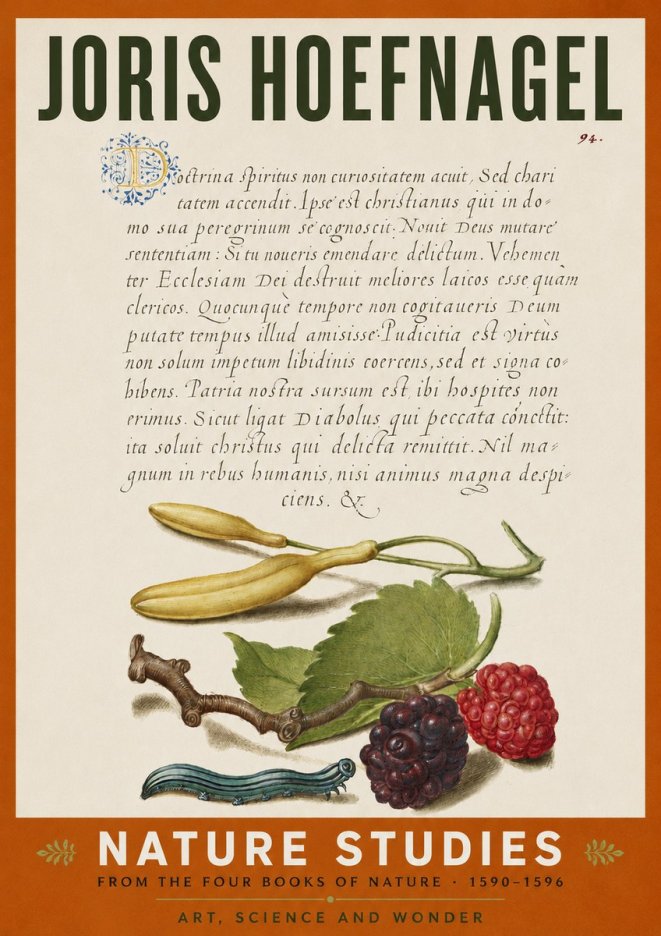 JORIS HOEFNAGEL
94.
Doctrina spiritus non curiositatem acuit, Sed chari
tatem accendit. Ipse est christianus qui in do=
mo sua peregrinum se cognoscit. Nouit Deus mutare
sententiam: Si tu noueris emendare delictum. Vehemen
ter Ecclesiam Dei destruit meliores laicos esse quàm
clericos. Quocunquè tempore non cogitaueris Deum
putate tempus illud amisisse. Pudicitia est virtùs
non solum impetum libidinis coercens, sed et signa co=
hibens. Patria nostra sursum est, ibi hospites non
erimus. Sicut ligat Diabolus, qui peccata
ita soluit christus qui delicta remittit. Nil ma=
gnum in rebus humanis, nisi animus magna despi=
ciens. &.
NATURE STUDIES
FROM THE FOUR BOOKS OF NATURE · 1590–1596
ART, SCIENCE AND WONDER